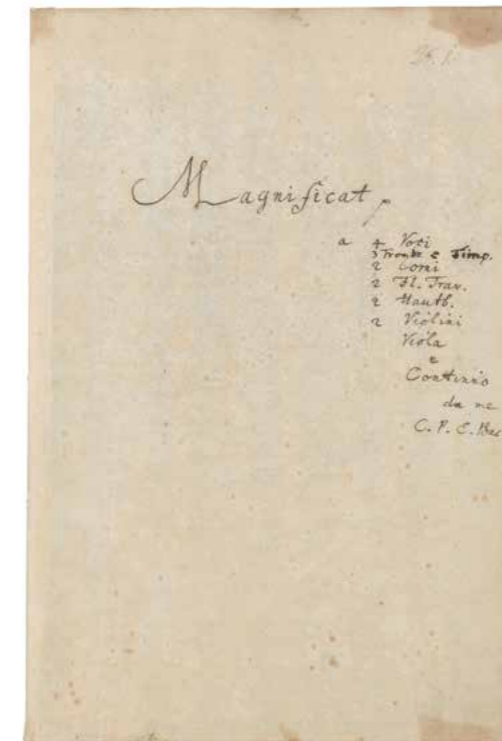 Magnificat
a 4 Voci
3 Trombe e Timp.
2 Corni
2 Fl. Trav.
2 Hautb.
2 Violini
Viola
e
Continuo
da me
C. P. E. Bac